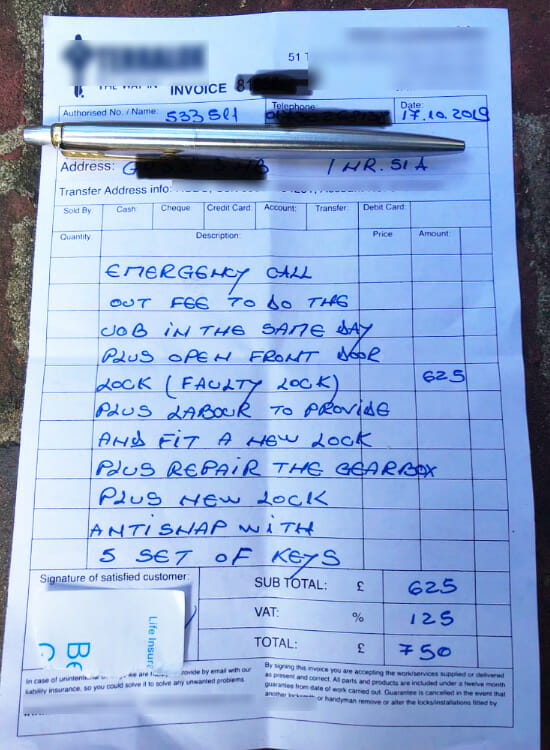 51
INVOICE 81
Authorised No. / Name: 533581 Telephone: Date: 17.10.2019
Address: G 1 HR. 51A
Transfer Address info:
Sold By Cash: Cheque Credit Card Account: Transfer: Debit Card:
Quantity Description: Price Amount:
EMERGENCY CALL
OUT FEE TO DO THE
JOB IN THE SAME DAY
PLUS OPEN FRONT DOOR
LOCK (FAULTY LOCK) 625
PLUS LABOUR TO PROVIDE
AND FIT A NEW LOCK
PLUS REPAIR THE GEARBOX
PLUS NEW LOCK
ANTISNAP WITH
5 SET OF KEYS
Signature of satisfied customer:
SUB TOTAL: £ 625
VAT: % 125
TOTAL: £ 750
Life insur
Be
In case of unintentional we are provide by email with our
liability insurance, so you could solve it to solve any unwanted problems
By signing this invoice you are accepting the work/services supplied or delivered
as present and correct. All parts and products are included under a twelve month
guarantee from date of work carried out. Guarantee is cancelled in the event that
another or handyman remove or alter the locks/installations fitted by